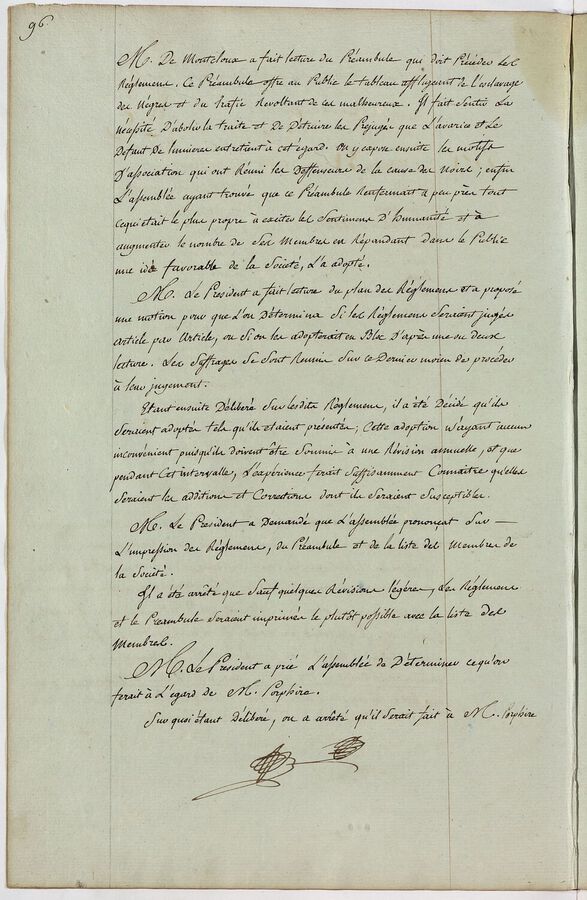 96.
M. De Montcloux a fait lecture du Préambule qui doit Précéder les
Réglemens. Ce Préambule offre au Public le tableau affligeant de l'esclavage
des Négres et du trafic Revoltant de ces malheureux. Il fait sentir la
nécessité D'abolir la traite et de Détruire les Prejugés que l'avarice et le
Défaut de lumieres entretient à cet égard. On y expose ensuite les motifs
D'association qui ont Réuni les Deffenseurs de la cause des Noirs; enfin
l'assemblée ayant trouvé que ce Préambule Renfermait à peu près tout
cequi était le plus propre à exciter les Sentimens D'humanité et à
augmenter le nombre de ses Membres en Répandant dans le Public
une idée favorable de la Société, l'a adopté.
M. Le President a fait lecture du plan des Réglemens et a proposé
une motion pour que l'on Détermina si les Réglemens seraient jugés
article par article, ou si on les adopterait en Bloc D'après une ou deux
lecture. Les suffrages se sont Reunis sur ce Dernier moien de procéder
à leur jugement.
Etant ensuite Déliberé sur lesdits Réglemens, il a été Décidé qu'ils
seraient adoptés tels qu'ils etaient presentés; Cette adoption n'ayant aucun
inconvénient puisqu'ils doivent être soumis à une Révision annuelle, et que
pendant cet intervalle, l'expérience ferait suffisamment Connaitre qu'elles
seraient les additions et Corrections dont ils seraient susceptibles.
M. Le President a Demandé que l'assemblée prononçat sur —
l'impression des Réglemens, du Préambule et de la liste des Membres de
la Société.
Il a été arrêté que sauf quelques Révisions légères, les Réglemens
et le Préambule seraient imprimés le plutôt possible avec la liste des
Membres.
M. Le President a prié l'assemblée de Déterminer cequ'on
ferait à l'egard de M. Porphire.
Sur quoi étant Déliberé, on a arrêté qu'il serait fait à M. Porphire